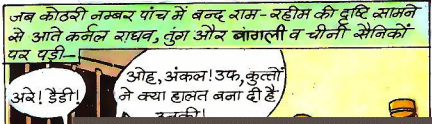 जब कोठरी नम्बर पांच में बन्द राम-रहीम की दृष्टि सामने
से आते कर्नल राघव, तुंग और बांगली व चीनी सैनिकों
पर पड़ी—
अरे! डैडी!
ओह, अंकल! उफ, कुत्तों
ने क्या हालत बना दी है